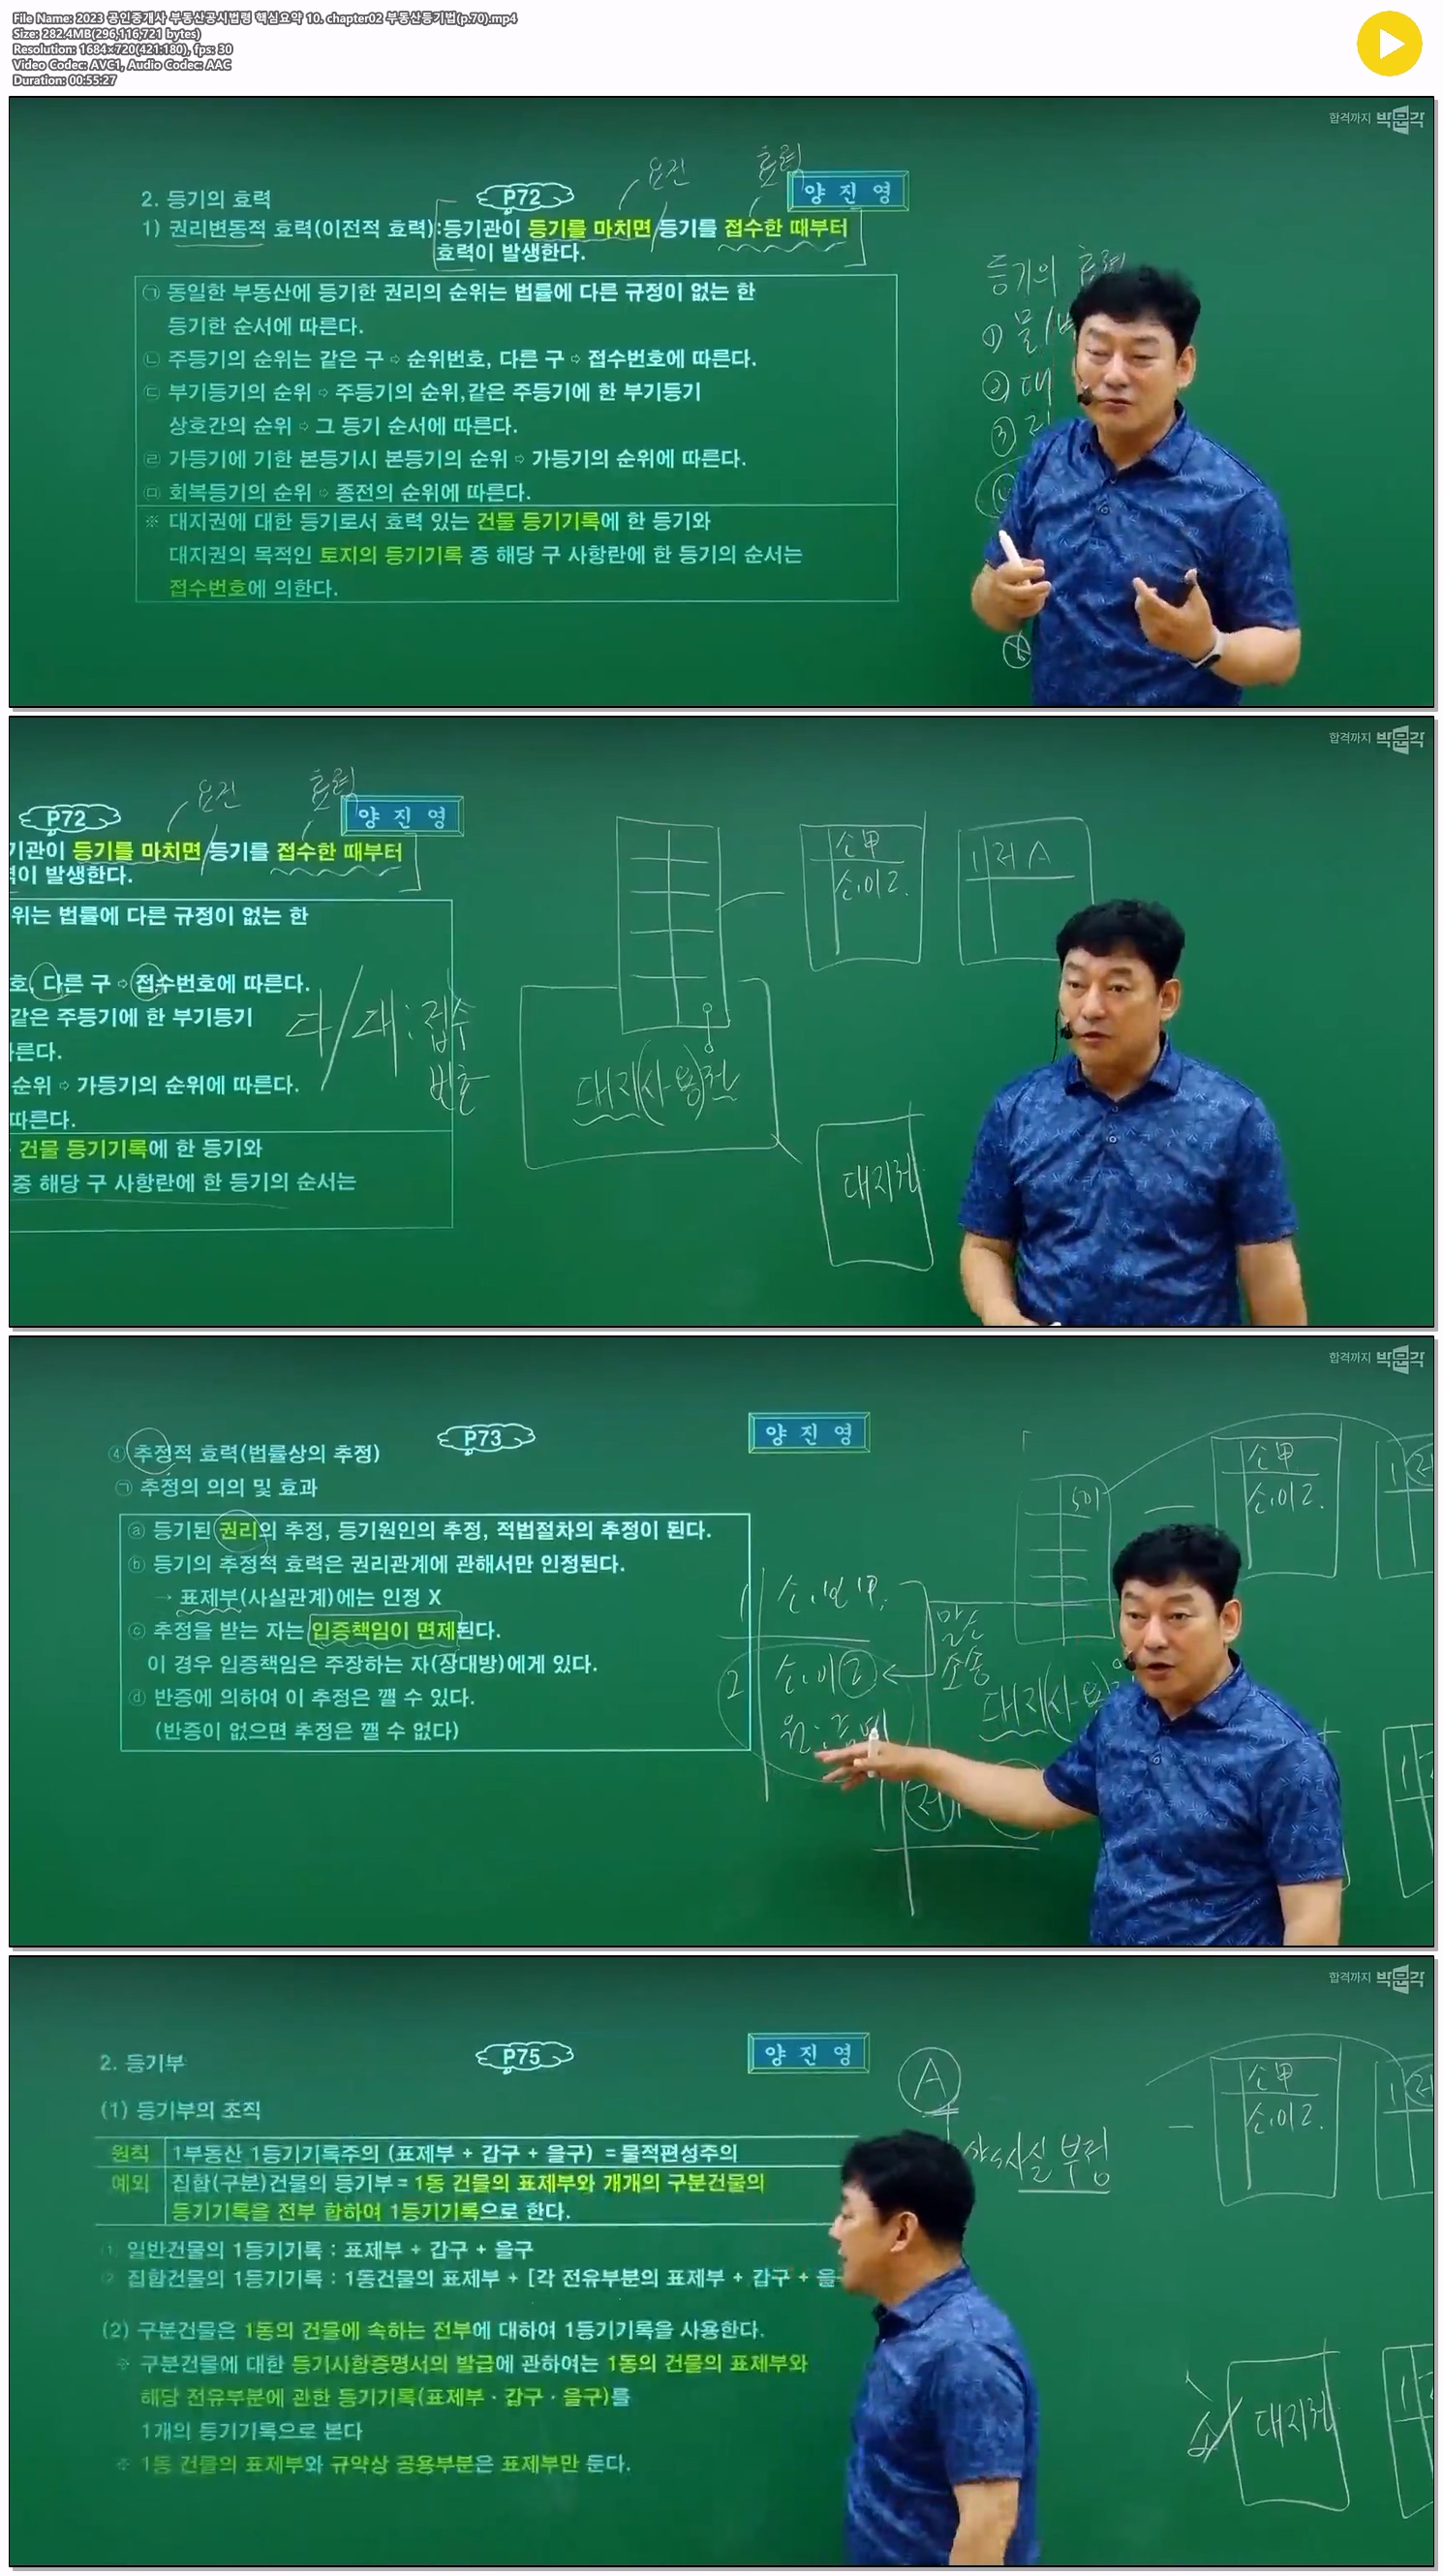 File Name: 2023 공인중개사 부동산공시법령 핵심요약 10. chapter02 부동산등기법(p.70).mp4
Size: 282.4MB(296,116,721 bytes)
Resolution: 1684×720(421:180), fps: 30
Video Codec: AVC1, Audio Codec: AAC
Duration: 00:55:27
합격까지 박문각
요건 효력
2. 등기의 효력
P72
양 진 영
1) 권리변동적 효력(이전적 효력):등기관이 등기를 마치면 등기를 접수한 때부터
효력이 발생한다.
㉠ 동일한 부동산에 등기한 권리의 순위는 법률에 다른 규정이 없는 한
등기한 순서에 따른다.
㉡ 주등기의 순위는 같은 구 ⇨ 순위번호, 다른 구 ⇨ 접수번호에 따른다.
㉢ 부기등기의 순위 ⇨ 주등기의 순위,같은 주등기에 한 부기등기
상호간의 순위 ⇨ 그 등기 순서에 따른다.
㉣ 가등기에 기한 본등기시 본등기의 순위 ⇨ 가등기의 순위에 따른다.
㉤ 회복등기의 순위 ⇨ 종전의 순위에 따른다.
※ 대지권에 대한 등기로서 효력 있는 건물 등기기록에 한 등기와
대지권의 목적인 토지의 등기기록 중 해당 구 사항란에 한 등기의 순서는
접수번호에 의한다.
등기의 효력
① 물/변
② 대
③
합격까지 박문각
요건 효력
P72
양 진 영
기관이 등기를 마치면 등기를 접수한 때부터
력이 발생한다.
위는 법률에 다른 규정이 없는 한
호, 다른 구 ⇨ 접수번호에 따른다.
같은 주등기에 한 부기등기
따른다.
순위 ⇨ 가등기의 순위에 따른다.
따른다.
건물 등기기록에 한 등기와
중 해당 구 사항란에 한 등기의 순서는
다/대:접수
번호
대지(사용)권
소 甲
소.이 乙.
1 저 A
대지권
합격까지 박문각
P73
양 진 영
④ 추정적 효력(법률상의 추정)
㉠ 추정의 의의 및 효과
ⓐ 등기된 권리의 추정, 등기원인의 추정, 적법절차의 추정이 된다.
ⓑ 등기의 추정적 효력은 권리관계에 관해서만 인정된다.
→ 표제부(사실관계)에는 인정 X
ⓒ 추정을 받는 자는 입증책임이 면제된다.
이 경우 입증책임은 주장하는 자(상대방)에게 있다.
ⓓ 반증에 의하여 이 추정은 깰 수 있다.
(반증이 없으면 추정은 깰 수 없다)
1 소.보 甲
2 소.이 乙
말소
소송
501
대지(사용)
소 甲
소.이 乙.
합격까지 박문각
2. 등기부
P75
양 진 영
(1) 등기부의 조직
원칙 1부동산 1등기기록주의 (표제부 + 갑구 + 을구) = 물적편성주의
예외 집합(구분)건물의 등기부 = 1동 건물의 표제부와 개개의 구분건물의
등기기록을 전부 합하여 1등기기록으로 한다.
① 일반건물의 1등기기록 : 표제부 + 갑구 + 을구
② 집합건물의 1등기기록 : 1동건물의 표제부 + [각 전유부분의 표제부 + 갑구 + 을
(2) 구분건물은 1동의 건물에 속하는 전부에 대하여 1등기기록을 사용한다.
※ 구분건물에 대한 등기사항증명서의 발급에 관하여는 1동의 건물의 표제부와
해당 전유부분에 관한 등기기록(표제부 · 갑구 · 을구)를
1개의 등기기록으로 본다
※ 1동 건물의 표제부와 규약상 공용부분은 표제부만 둔다.
A
사실 부정
소 甲
소.이 乙.
소
대지권